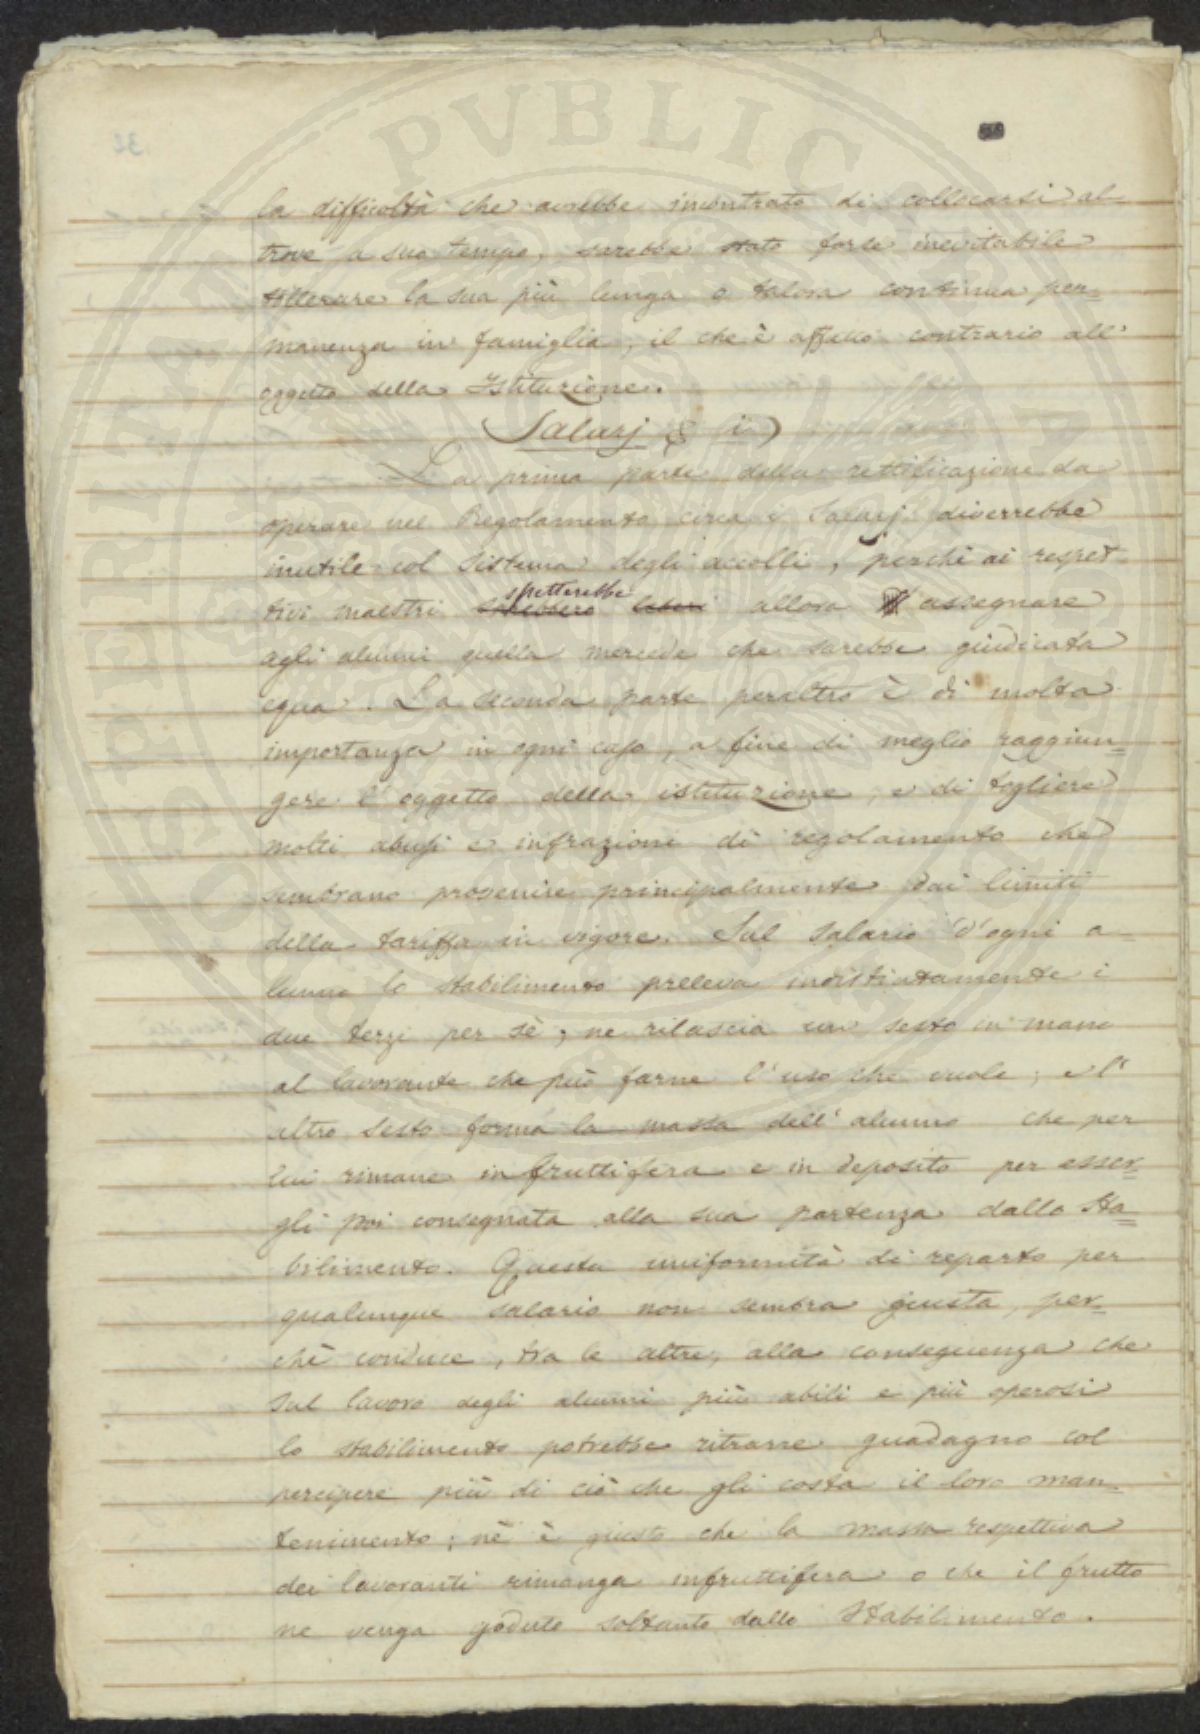 la difficoltà che avrebbe incontrato di collocarsi al-
trove a suo tempo, sarebbe stato forse inevitabile
tollerare la sua più lunga o talora continua per=
manenza in famiglia, il che è affatto contrario all'
oggetto della Istituzione.
Salarj § (i)
La prima parte della rettificazione da
operare nel Regolamento circa i Salarj diverrebbe
inutile col sistema degli accolli, perchè ai respet
spetterebbe
tivi maestri allora assegnare
agli alunni quella mercede che sarebbe giudicata
equa. La seconda parte peraltro è di molta
importanza in ogni caso, a fine di meglio raggiun=
gere l'oggetto della istituzione, e di togliere
molti abusi e infrazioni di regolamento che
sembrano provenire principalmente dai limiti
della tariffa in vigore. Sul salario d'ogni a-
lunno lo stabilimento preleva indistintamente i
due terzi per sè; ne rilascia un sesto in mano
al lavorante che può farne l'uso che vuole; e l'
altro sesto forma la massa dell'alunno che per
lui rimane infruttifera e in deposito per esser=
gli poi consegnata alla sua partenza dallo Sta=
bilimento. Questa uniformità di reparto per
qualunque salario non sembra giusta, per=
chè conduce, tra le altre, alla conseguenza che
sul lavoro degli alunni più abili e più operosi
lo stabilimento potrebbe ritrarre guadagno col
percipere più di ciò che gli costa il loro man=
tenimento; nè è giusto che la massa respettiva
dei lavoranti rimanga infruttifera o che il frutto
ne venga goduto soltanto dallo Stabilimento.